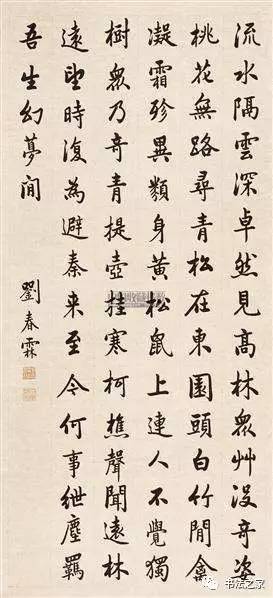 流水隔雲深卓然見高林眾艸沒奇姿
桃花無路尋青松在東園頭白竹閒禽
凝霜殄異類身黃松鼠上連人不覺獨
樹眾乃奇青提壺挂寒柯樵聲聞遠林
遠望時復為避秦来至今何事紲塵羈
吾生幻夢間
劉春霖
书法之家